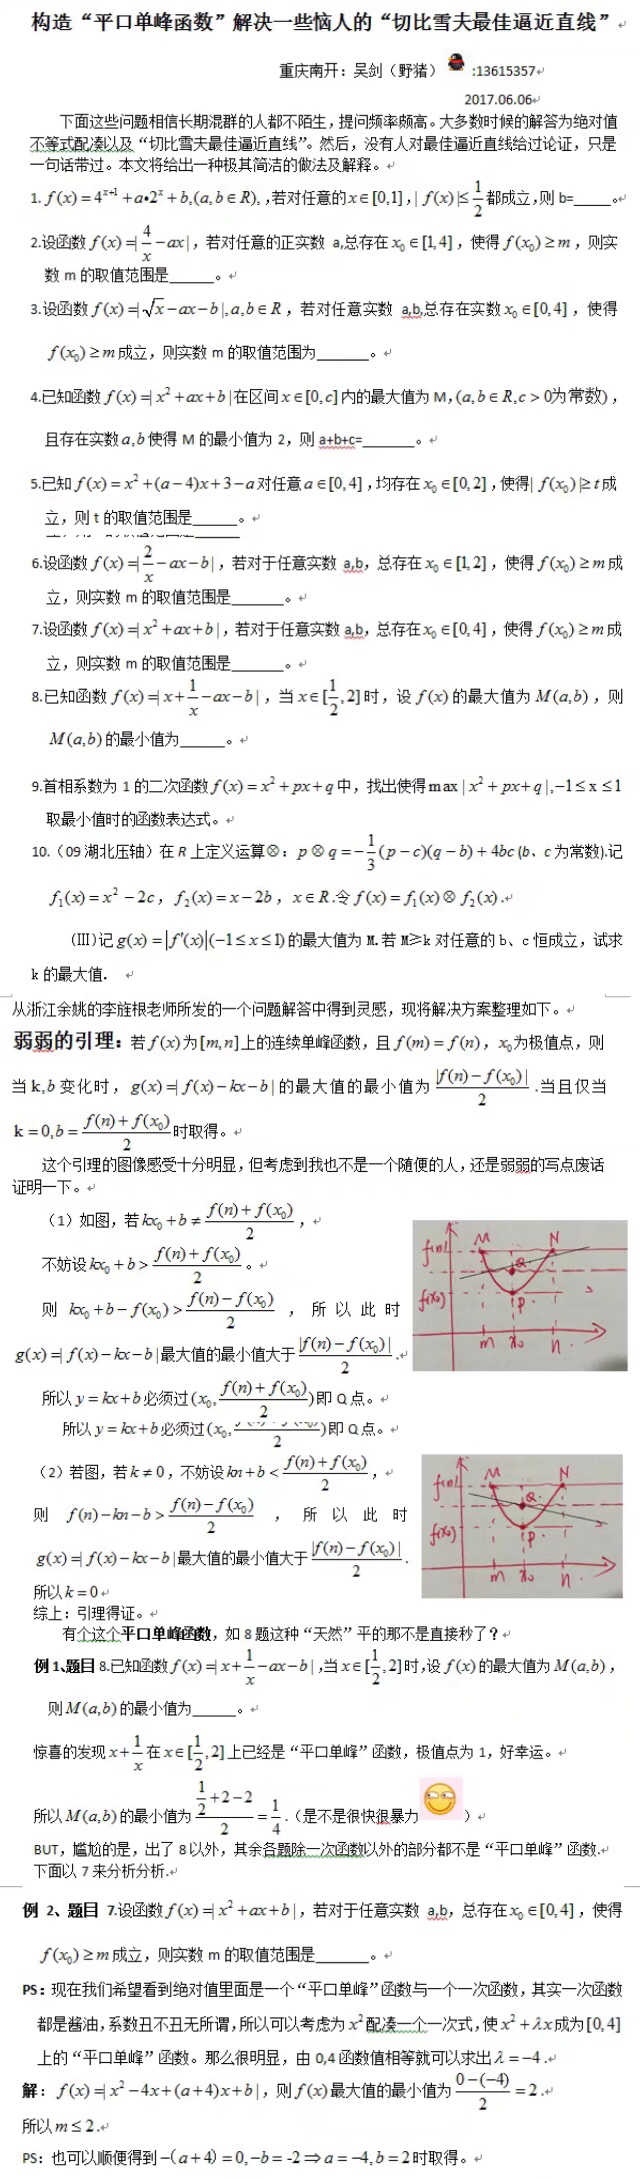 构造“平口单峰函数”解决一些恼人的“切比雪夫最佳逼近直线”
重庆南开：吴剑（野猪） :13615357
2017.06.06
下面这些问题相信长期混群的人都不陌生，提问频率颇高。大多数时候的解答为绝对值
不等式配凑以及“切比雪夫最佳逼近直线”。然后，没有人对最佳逼近直线给过论证，只是
一句话带过。本文将给出一种极其简洁的做法及解释。
1. f(x)=4^{x+1}+a•2^x+b,(a,b∈R),,若对任意的x∈[0,1],|f(x)|≤1/2都成立,则b=_____。
2.设函数f(x)=|4/x-ax|，若对任意的正实数 a,总存在x₀∈[1,4]，使得f(x₀)≥m，则实
数m的取值范围是______。
3.设函数f(x)=|√x-ax-b|,a,b∈R，若对任意实数 a,b,总存在实数x₀∈[0,4]，使得
f(x₀)≥m成立，则实数m的取值范围为_______。
4.已知函数f(x)=|x²+ax+b|在区间x∈[0,c]内的最大值为M，(a,b∈R,c>0为常数)，
且存在实数a,b使得M的最小值为2，则a+b+c=_______。
5.已知f(x)=x²+(a-4)x+3-a对任意a∈[0,4]，均存在x₀∈[0,2]，使得|f(x₀)|≥t成
立，则t的取值范围是______。
6.设函数f(x)=|2/x-ax-b|，若对于任意实数 a,b，总存在x₀∈[1,2]，使得f(x₀)≥m成
立，则实数m的取值范围是_______。
7.设函数f(x)=|x²+ax+b|，若对于任意实数a,b，总存在x₀∈[0,4]，使得f(x₀)≥m成
立，则实数m的取值范围是_______。
8.已知函数f(x)=|x+1/x-ax-b|，当x∈[1/2,2]时，设f(x)的最大值为M(a,b)，则
M(a,b)的最小值为______。
9.首相系数为1的二次函数f(x)=x²+px+q中，找出使得max|x²+px+q|,-1≤x≤1
取最小值时的函数表达式。
10.（09湖北压轴）在R上定义运算⊗：p⊗q=-1/3(p-c)(q-b)+4bc(b、c为常数).记
f₁(x)=x²-2c，f₂(x)=x-2b，x∈R.令f(x)=f₁(x)⊗f₂(x).
(III)记g(x)=|f′(x)|(-1≤x≤1)的最大值为M.若M≥k对任意的b、c恒成立，试求
k的最大值.
从浙江余姚的李旌根老师所发的一个问题解答中得到灵感，现将解决方案整理如下。
弱弱的引理：若f(x)为[m,n]上的连续单峰函数，且f(m)=f(n)，x₀为极值点，则
当k,b变化时，g(x)=|f(x)-kx-b|的最大值的最小值为|f(n)-f(x₀)|/2.当且仅当
k=0,b=(f(n)+f(x₀))/2时取得。
这个引理的图像感受十分明显，但考虑到我也不是一个随便的人，还是弱弱的写点废话
证明一下。
（1）如图，若kx₀+b≠(f(n)+f(x₀))/2，
不妨设kx₀+b>(f(n)+f(x₀))/2。
则 kx₀+b-f(x₀)>(f(n)-f(x₀))/2，所以此时
g(x)=|f(x)-kx-b|最大值的最小值大于|f(n)-f(x₀)|/2.
所以y=kx+b必须过(x₀,(f(n)+f(x₀))/2)即Q点。
f(n)
f(x₀)
M
N
Q
P
m
x₀
n
所以y=kx+b必须过(x₀,(f(n)+f(x₀))/2)即Q点。
（2）若图，若k≠0，不妨设kn+b<(f(n)+f(x₀))/2，
则 f(n)-kn-b>(f(n)-f(x₀))/2，所以此时
g(x)=|f(x)-kx-b|最大值的最小值大于|f(n)-f(x₀)|/2.
所以k=0
f(n)
f(x₀)
M
N
Q
P
m
x₀
n
综上：引理得证。
有个这个平口单峰函数，如8题这种“天然”平的那不是直接秒了？
例1、题目8.已知函数f(x)=|x+1/x-ax-b|,当x∈[1/2,2]时,设f(x)的最大值为M(a,b)，
则M(a,b)的最小值为______。
惊喜的发现x+1/x在x∈[1/2,2]上已经是“平口单峰”函数，极值点为1，好幸运。
所以M(a,b)的最小值为(1/2+2-2)/2=1/4.（是不是很快很暴力）
BUT，尴尬的是，出了8以外，其余各题除一次函数以外的部分都不是“平口单峰”函数.
下面以7来分析分析.
例 2、题目 7.设函数f(x)=|x²+ax+b|，若对于任意实数 a,b，总存在x₀∈[0,4]，使得
f(x₀)≥m成立，则实数m的取值范围是_______。
PS：现在我们希望看到绝对值里面是一个“平口单峰”函数与一个一次函数，其实一次函数
都是酱油，系数丑不丑无所谓，所以可以考虑为x²配凑一个一次式，使x²+λx成为[0,4]
上的“平口单峰”函数。那么很明显，由0,4函数值相等就可以求出λ=-4.
解：f(x)=|x²-4x+(a+4)x+b|，则f(x)最大值的最小值为(0-(-4))/2=2.
所以m≤2.
PS：也可以顺便得到-(a+4)=0,-b=-2⇒a=-4,b=2时取得。